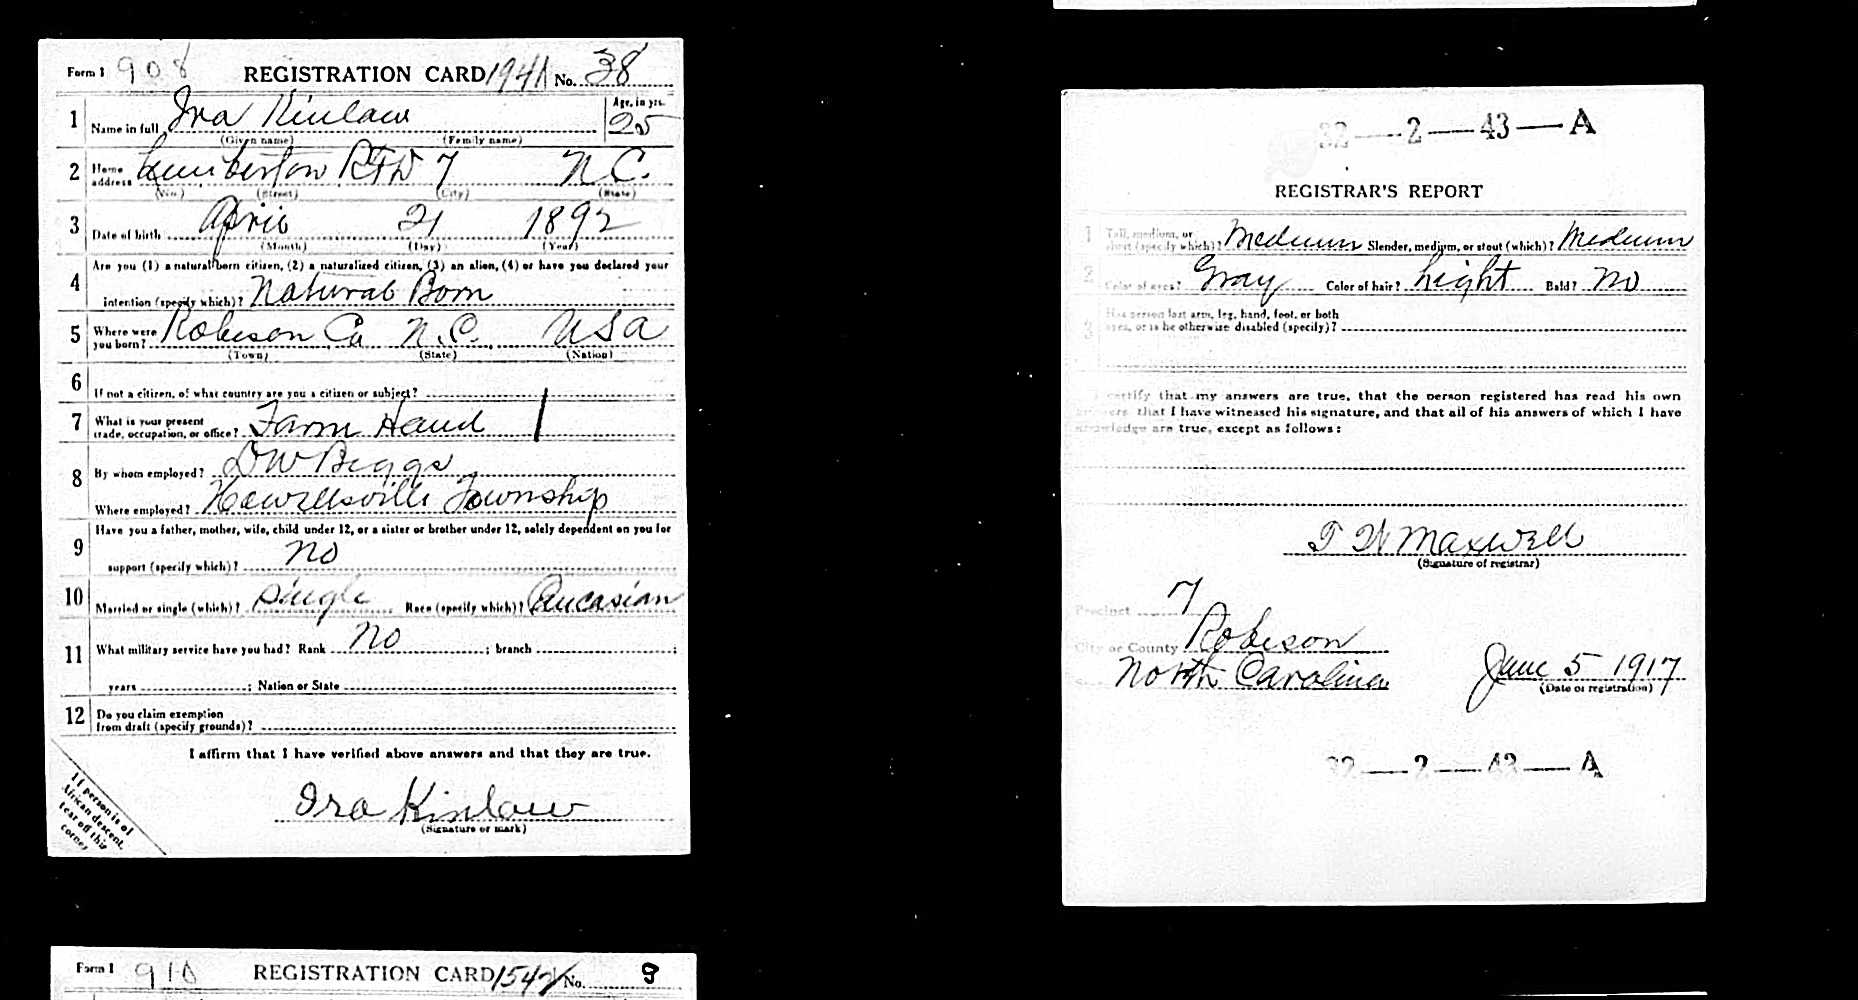 Form 1 908 REGISTRATION CARD 1941 No. 38
1 Name in full Ira Kinlaw Age, in yrs. 25
(Given name) (Family name)
2 Home address Lumberton RFD 7 N.C.
(No.) (Street) (City) (State)
3 Date of birth April 21 1892
(Month) (Day) (Year)
4 Are you (1) a natural born citizen, (2) a naturalized citizen, (3) an alien, (4) or have you declared your
intention (specify which)? Natural Born
5 Where were you born? Robeson Co N.C. USA
(Town) (State) (Nation)
6 If not a citizen, of what country are you a citizen or subject?
7 What is your present trade, occupation, or office? Farm Hand
8 By whom employed? D W Biggs
Where employed? Howellsville Township
9 Have you a father, mother, wife, child under 12, or a sister or brother under 12, solely dependent on you for
support (specify which)? No
10 Married or single (which)? Single Race (specify which)? Caucasian
11 What military service have you had? Rank No ; branch ;
years ; Nation or State
12 Do you claim exemption
from draft (specify grounds)?
I affirm that I have verified above answers and that they are true.
Ira Kinlaw
(Signature or mark)
If person is of
African descent,
tear off this
corner
Form 1 910 REGISTRATION CARD 1542 No. 9
32—2—43—A
REGISTRAR'S REPORT
1 Tall, medium, or short (specify which)? Medium Slender, medium, or stout (which)? Medium
2 Color of eyes? Gray Color of hair? Light Bald? No
3 Has person lost arm, leg, hand, foot, or both
eyes, or is he otherwise disabled (specify)?
I certify that my answers are true, that the person registered has read his own
answers, that I have witnessed his signature, and that all of his answers of which I have
knowledge are true, except as follows:
T W Maxwell
(Signature of registrar)
Precinct 7
City or County Robeson
North Carolina June 5 1917
(Date of registration)
32—2—43—A